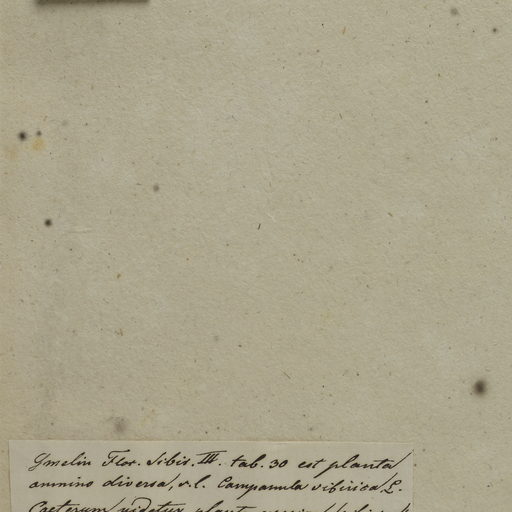 Gmelin Flor. Sibir. III. tab. 30 est planta
omnino diversa, v. l. Campanula sibirica L.
Caeterum videtur